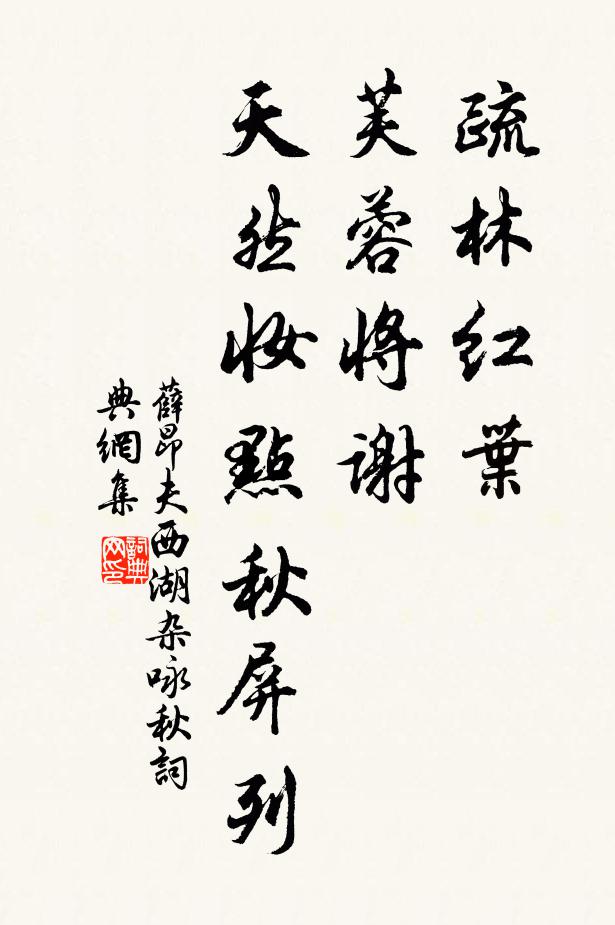 疏林红葉
芙蓉将谢
天然妆點秋屏列
薛昂夫西湖杂咏秋詞
典網集
詞典网印